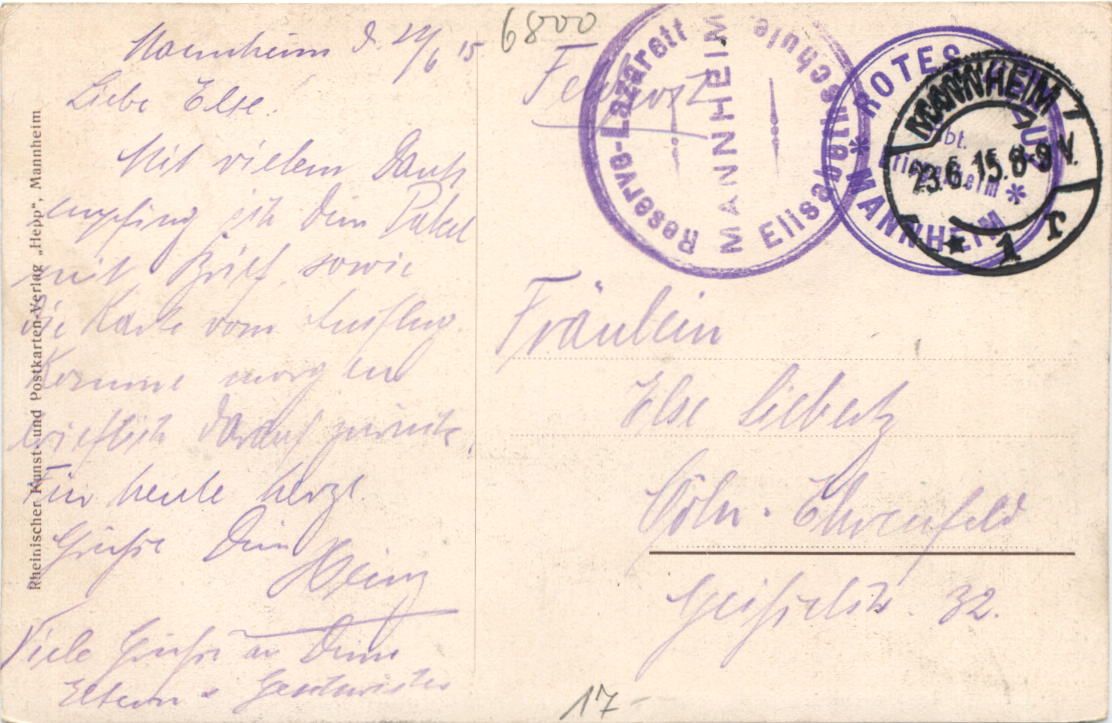 Mannheim d. 22/6 15
Liebe Else!
Mit vielem Dank
empfing ich Dein Paket
mit Brief, sowie
die Karte vom Ausflug.
Komme morgen
brieflich darauf zurück.
Für heute herzl.
Grüße Dein
Heinz
Viele Grüße an Deine
Eltern u. Geschwister
Rheinischer Kunst- und Postkarten-Verlag „Hepp", Mannheim
6800
Feldpost
Reserve-Lazarett
MANNHEIM
Elisabethschule.
ROTES
MANNHEIM
MANNHEIM
23.6.15.8-9V.
* 1 r
Fräulein
Else Liebertz
Cöln-Ehrenfeld
Geisselstr. 32.
17-